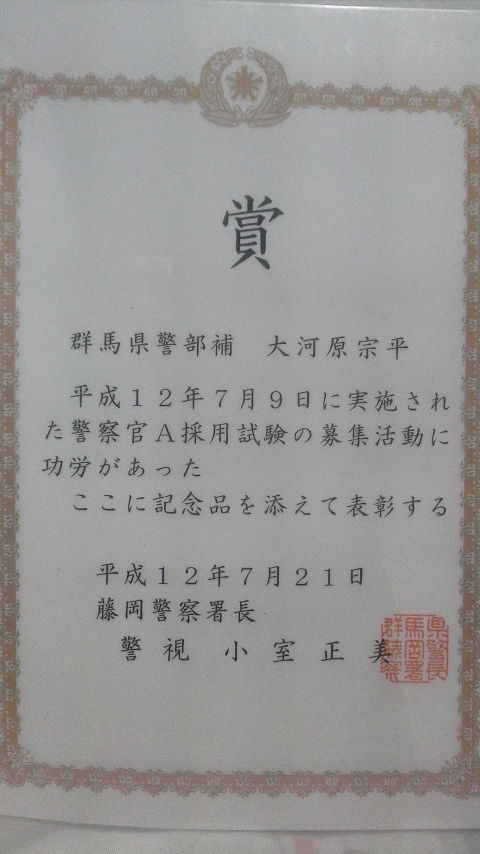 賞
群馬県警部補　大河原宗平
平成１２年７月９日に実施され
た警察官Ａ採用試験の募集活動に
功労があった
ここに記念品を添えて表彰する
平成１２年７月２１日
藤岡警察署長
警視　小室正美